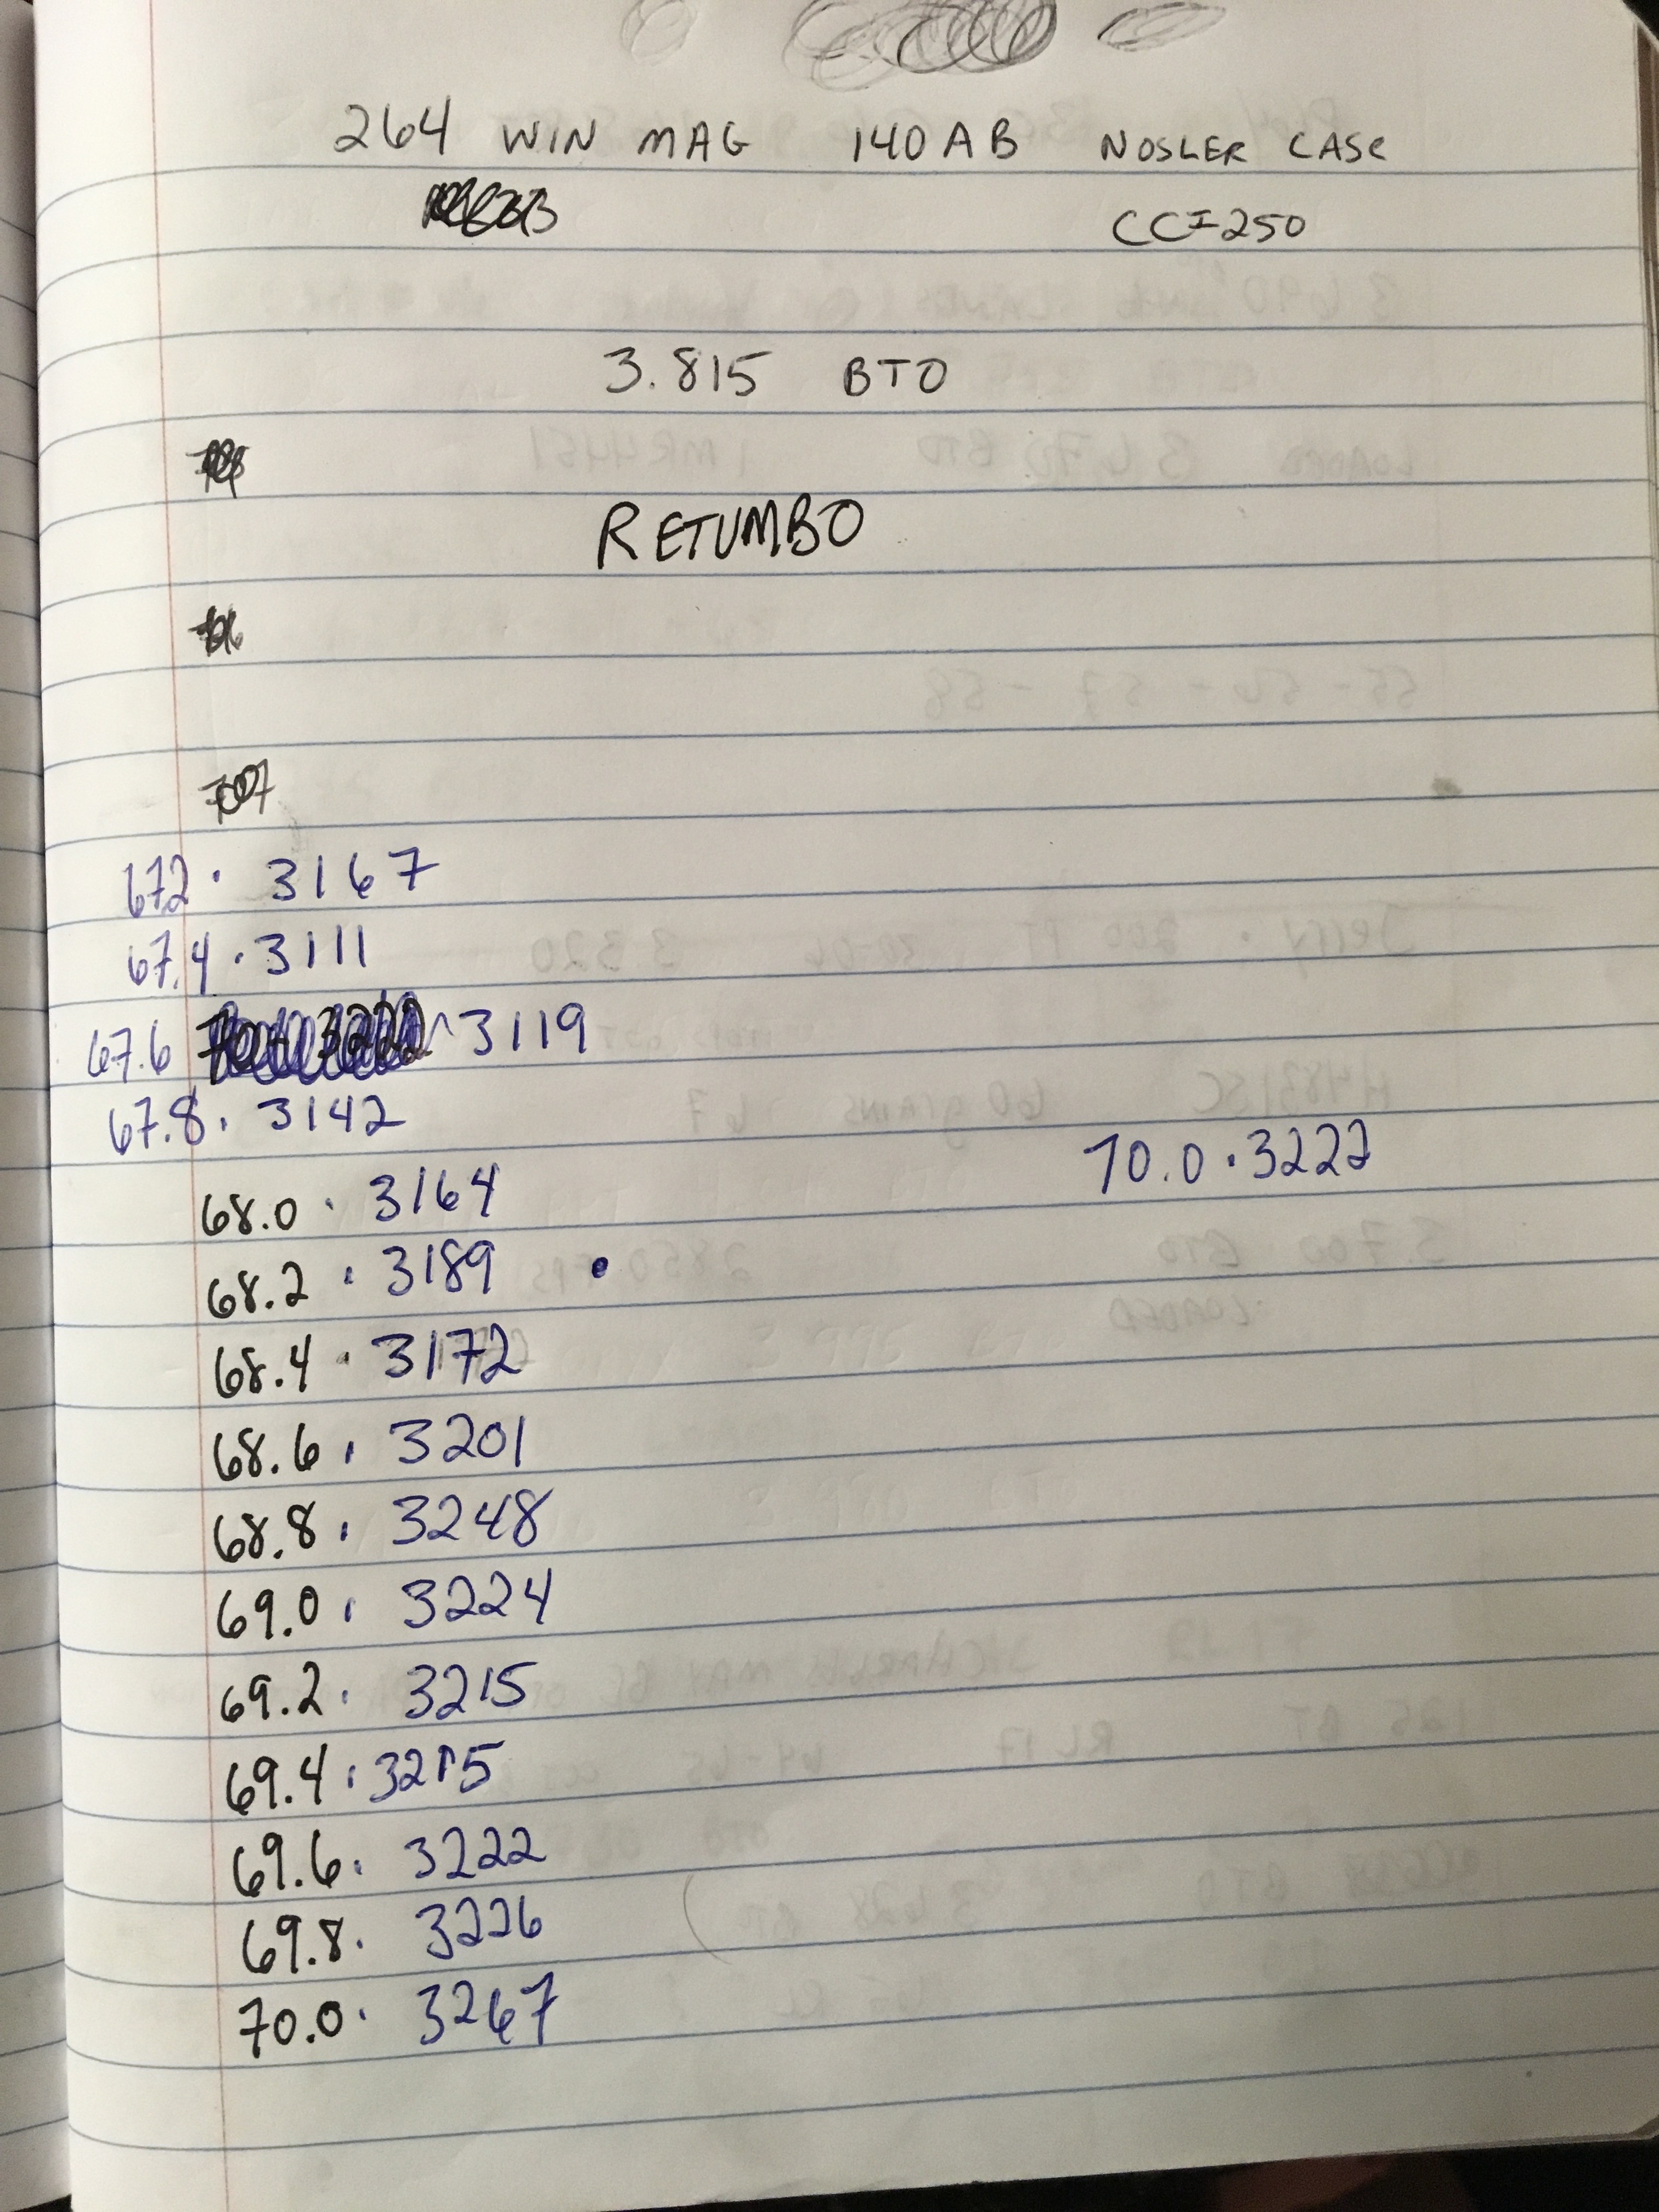 264 WIN MAG 140 AB NOSLER CASE
CCI-250
3.815 BTO
RETUMBO
672 · 3167
67.4 · 3111
67.6 3119
67.8 · 3142
70.0 · 3222
68.0 · 3164
68.2 · 3189
68.4 · 3172
68.6 · 3201
68.8 · 3248
69.0 · 3224
69.2 · 3215
69.4 · 3215
69.6 · 3222
69.8 · 3226
70.0 · 3267